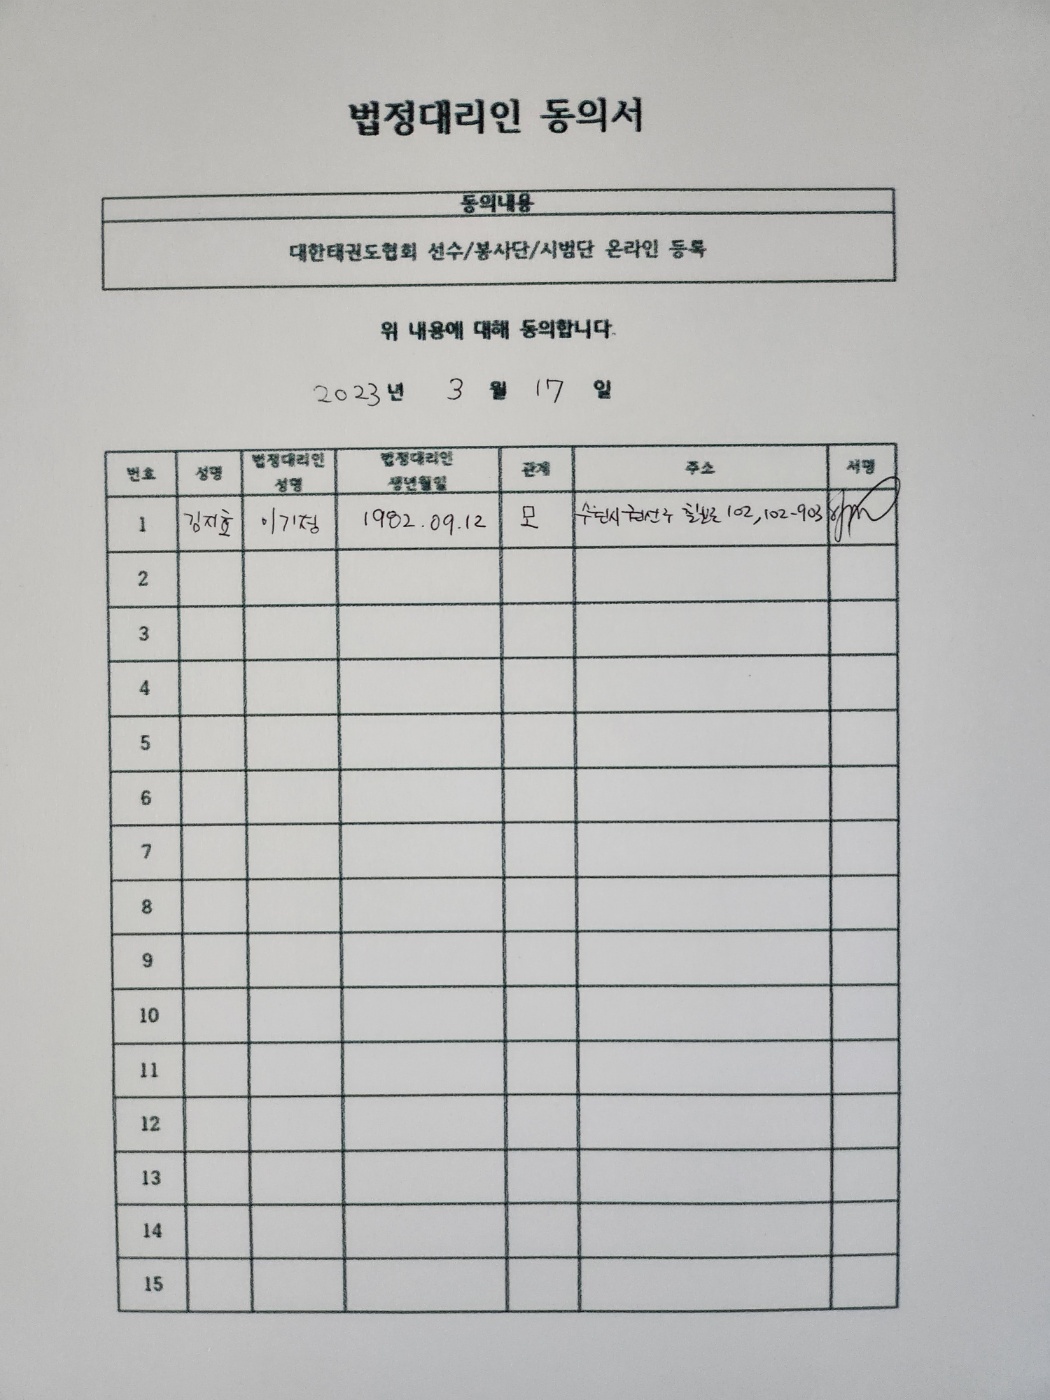 법정대리인 동의서
동의내용
대한태권도협회 선수/봉사단/시범단 온라인 등록
위 내용에 대해 동의합니다.
2023년 3 월 17 일
번호 성명 법정대리인 성명 법정대리인 생년월일 관계 주소 서명
1 김지호 이기정 1982.09.12 모 수원시 권선구 칠보로 102, 102-903
2
3
4
5
6
7
8
9
10
11
12
13
14
15